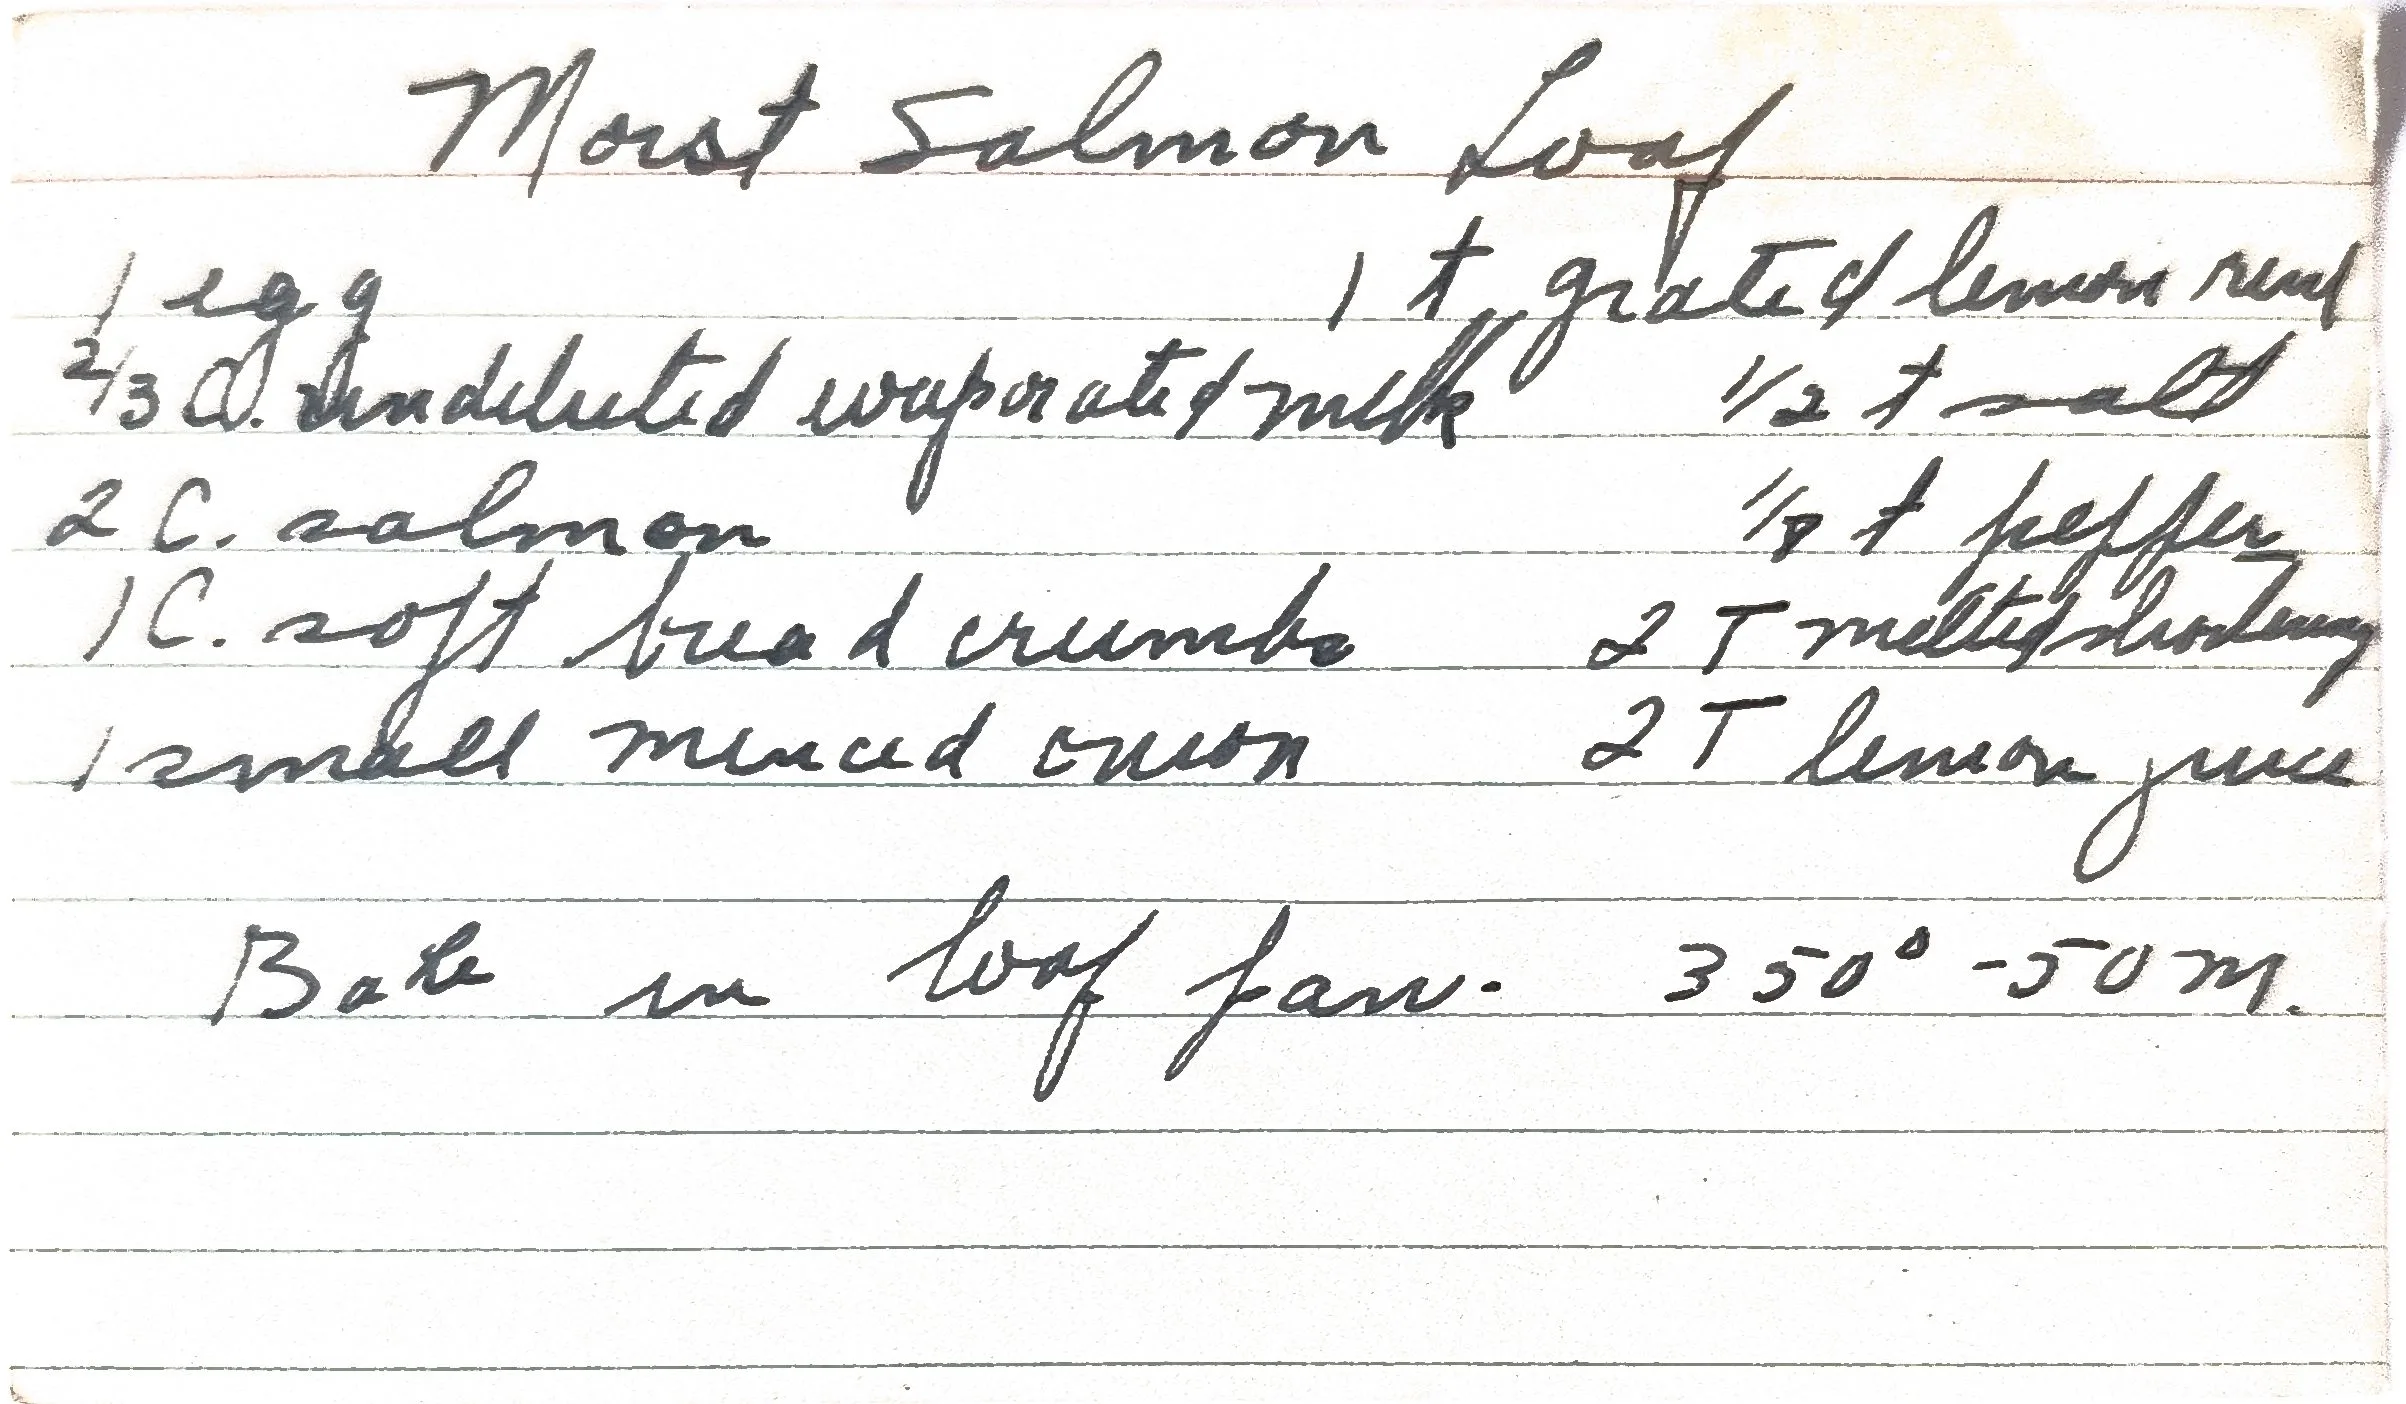 Moist Salmon Loaf
1 egg 1 t grated lemon rind
2/3 C. undiluted evaporated milk 1/2 t salt
2 C. salmon 1/8 t pepper
1 C. soft bread crumbs 2 T melted shortening
1 small minced onion 2 T lemon juice
Bake in loaf pan. 350° - 50 m.